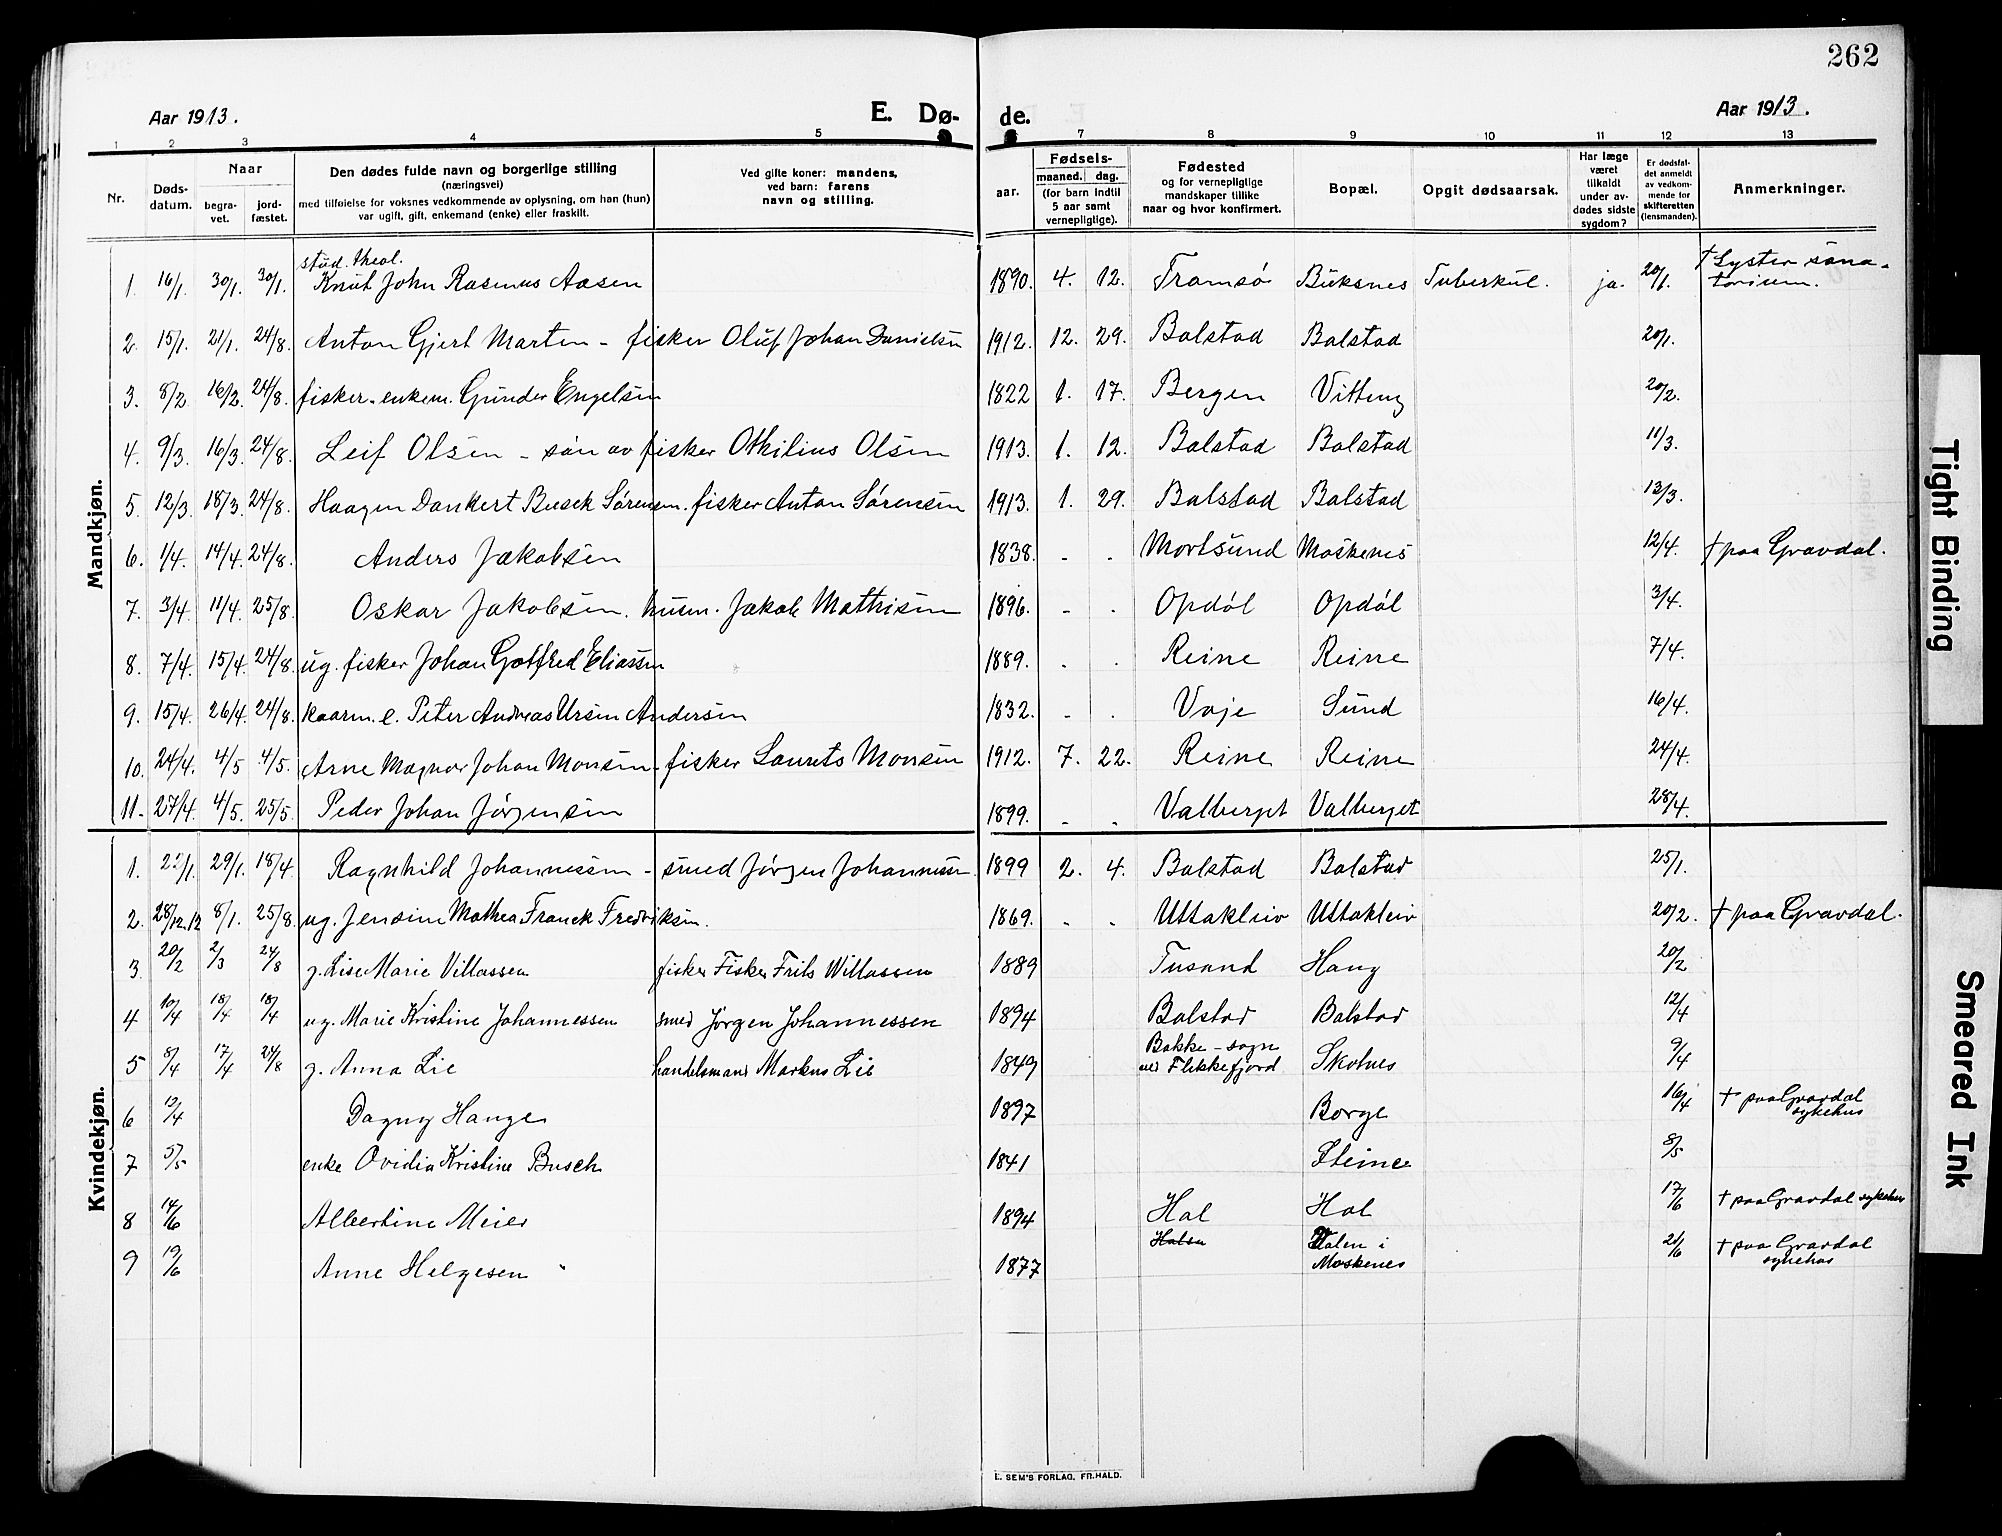 262
Aar 1913.
E. Dø-
de.
Aar 1913.
1 2 3 4 5 7 8 9 10 11 12 13
Nr.
Døds-
datum.
Naar
begra-
vet.
jord-
fæstet.
Den dødes fulde navn og borgerlige stilling
(næringsvei)
med tilføielse for voksnes vedkommende av oplysning, om han (hun)
var ugift, gift, enkemand (enke) eller fraskilt.
Ved gifte koner: mandens,
ved barn: farens
navn og stilling.
aar.
Fødsels-
maaned. dag.
(for barn indtil
5 aar samt
vernepligtige).
Fødested
og for vernepligtige
mandskaper tillike
naar og hvor konfirmert.
Bopæl.
Opgit dødsaarsak.
Har læge
været
tilkaldt
under av-
dødes sidste
sygdom?
Er dødsfal-
det anmeldt
av vedkom-
mende for
skifteretten
(lensmanden).
Anmerkninger.
Mandkjøn.
stud. theol.
1. 16/1. 30/1. 30/1. Knut John Rasmus Aasen 1890. 4. 12. Tromsø Buksnes Tuberkul. ja. 20/1. † Lyster sana-
torium.
2. 15/1. 21/1. 24/8. Anton Gjert Marten - fisker Oluf Johan Danielsen 1912. 12. 29. Balstad Balstad 20/1.
3. 8/2 16/2. 24/8. fisker. enkem. Gunder Engelsen 1822 1. 17. Bergen Vitting 20/2.
4. 9/3. 16/3. 24/8. Leif Olsen - søn av fisker Othilius Olsen 1913. 1. 12. Balstad Balstad 11/3.
5. 12/3. 18/3. 24/8. Haagen Dankert Busck Sørensen. fisker Anton Sørensen 1913. 1. 29. Balstad Balstad 13/3.
6. 1/4. 14/4. 24/8. Anders Jakobsen 1838. - . Mortsund Moskenes 12/4. † paa Gravdal.
7. 3/4. 11/4. 25/8. Oskar Jakobsen. husm. Jakob Mathisen 1896. - . Opdøl Opdøl 3/4.
8. 7/4. 15/4. 24/8. ug. fisker Johan Gotfred Eliassen 1889. . . Reine Reine 7/4.
9. 15/4. 26/4. 24/8. kaarm. e. Peter Andreas Ursin Andersen 1832. - . Voje Sund 16/4.
10. 24/4. 4/5 4/5. Arne Magnar Johan Monsen. fisker Laurits Monsen 1912. 7. 22. Reine Reine 24/4.
11. 27/4. 4/5. 25/5. Peder Johan Jørgensen 1899. - . Valberget Valberget 28/4.
Kvindekjøn.
1. 29/1. 18/4 Ragnhild Johannessen - smed Jørgen Johannessen 1899 2. 4. Balstad Balstad 25/1.
2. 28/12.12 8/1. 25/8. ug. Jensine Mathea Franck Fredriksen. 1869. - . Uttakleiv Uttakleiv 20/2. † paa Gravdal.
3. 20/2 2/3 24/8 g. Lise Marie Villassen fisker Fisker Frits Willassen 1889 Tusund Haug 20/2
4 10/4 18/4 18/4 ug. Marie Kristine Johannessen smed Jørgen Johannessen 1894 Balstad Balstad 12/4
5 8/4 17/4 24/8 g. Anna Lie handelsmand Markus Lie 1849 Bakke - sogn
ved Flekkefjord Skotnes 9/4
6 13/4 Dagny Hauge 1897 Borge 16/4 † paa Gravdal
sykehus
7 5/5 enke Ovidia Kristine Busch 1841 Steine 8/5
8 14/6 Albertine Meier 1894 Hol Hol 17/6 † paa Gravdal sykehus
9 19/6 Anne Helgesen 1877 Halsn Talen i
Moskenes 21/6 † paa Gravdal
sykehus
E. SEM'S FORLAG, FR.HALD.
Tight Binding
Smeared Ink